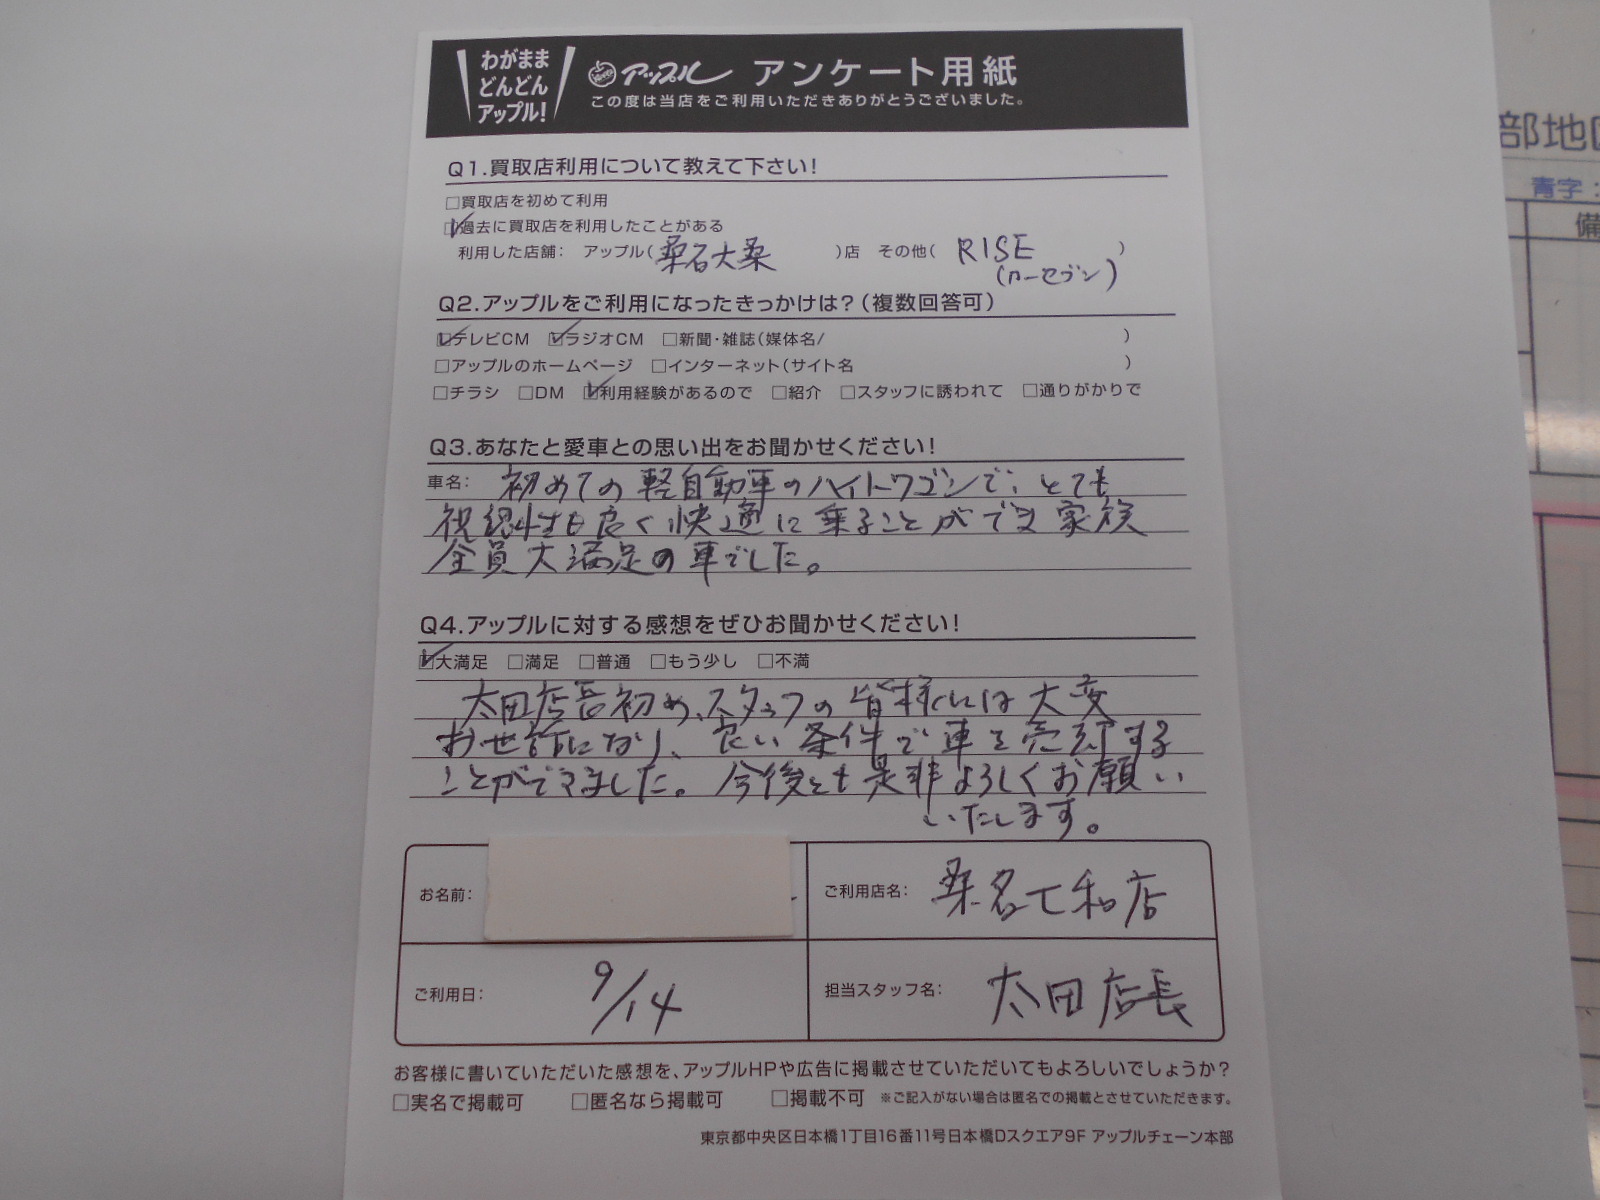 わがまま
どんどん
アップル!
アップル アンケート用紙
この度は当店をご利用いただきありがとうございました。
Q1.買取店利用について教えて下さい!
□買取店を初めて利用
☑過去に買取店を利用したことがある
利用した店舗: アップル(桑名大桑)店 その他(RISE)
(カーセブン)
Q2.アップルをご利用になったきっかけは?(複数回答可)
☑テレビCM ☑ラジオCM □新聞・雑誌(媒体名/ )
□アップルのホームページ □インターネット(サイト名 )
□チラシ □DM ☑利用経験があるので □紹介 □スタッフに誘われて □通りがかりで
Q3.あなたと愛車との思い出をお聞かせください!
車名: 初めての軽自動車のハイトワゴンで、とても
視認性も良く快適に乗ることができ家族
全員大満足の車でした。
Q4.アップルに対する感想をぜひお聞かせください!
☑大満足 □満足 □普通 □もう少し □不満
太田店長初め、スタッフの皆様には大変
お世話になり、良い条件で車を売却する
ことができました。今後とも是非よろしくお願い
いたします。
お名前:
ご利用店名: 桑名七和店
ご利用日: 9/14
担当スタッフ名: 太田店長
お客様に書いていただいた感想を、アップルHPや広告に掲載させていただいてもよろしいでしょうか?
□実名で掲載可 □匿名なら掲載可 □掲載不可 ※ご記入がない場合は匿名での掲載とさせていただきます。
東京都中央区日本橋1丁目16番11号日本橋Dスクエア9F アップルチェーン本部
部地
青字:
備